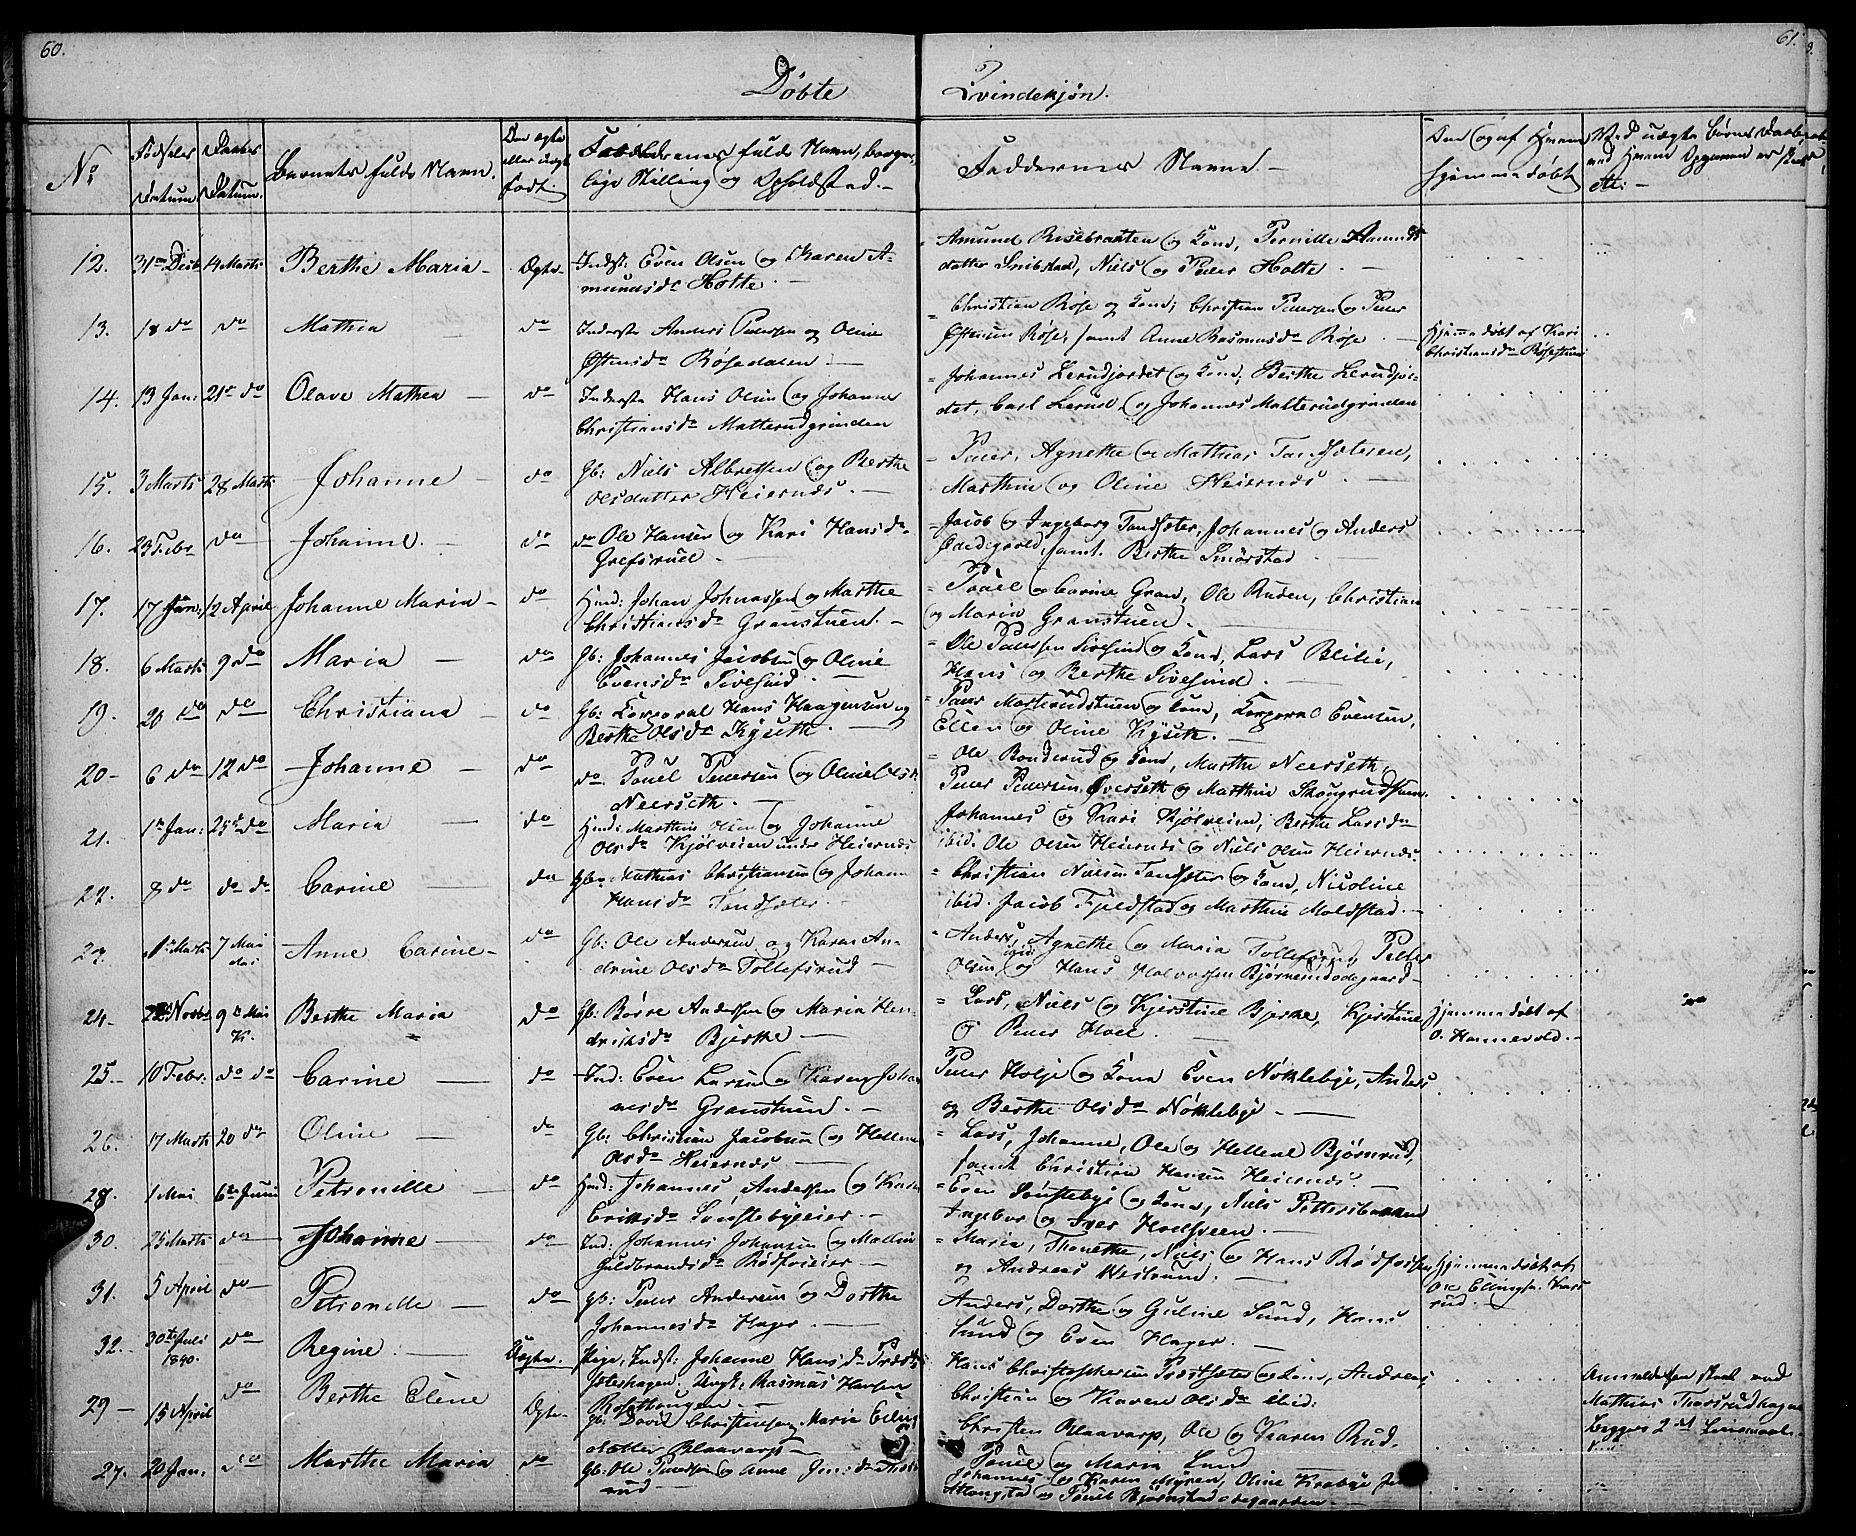 60.
61.
Døbte
Qvindekjøn.
No
Fødsels Datum
Daabs Datum.
Barnets fulde Navn.
Om ægte eller uægte født.
Forældrenes fulde Navn, borgerlige Stilling og Opholdsted.
Faddernes Navne
hjemmedøbt
12. 31te Decb 4 Marts Berthe Maria Ægte Indst: Even Olsen og Karen Amundsdr Holte.
Amund Risebraaten og Kone, Pernille Amundsdatter Snibstad, Niels og Peder Holte.
13. 18 do do Mathia do Inderste Anders Pedersen og Oline Østensdr Røsedalen
Christian Røse og Kone; Christian Pedersen og Peder Østensen Røse, samt Anne Rasmusdr Røse.
Hjemmedøbt af Kari Christiansdr Røsestuen
14. 13 Jan: 21de do Olave Mathea do Inderste Hans Olsen og Johanne Christiansdr Malterudgrinden
Johannes Lerudjordet og Kone, Berthe Lerudjordet, Carl Lerud og Johannes Malterudgrinden
15. 3 Marts 28 Marts Johanne do Gb: Niels Albretsen og Berthe Olsdatter Heiernæs.
Peder, Agnethe og Mathias Tandsæteren, Marthin og Oline Heiernæs.
16. 23 Febr do Johanne. do do Ole Hansen og Kari Hansdr Grefsrud
Jacob og Ingeborg Tandsæter, Johannes og Anders samt Berthe Smørstad
17. 17 Jan: 12 April Johanne Maria do Huusd: Johan Johnassen og Marthe Christiansdr Granstuen.
Pouel og Carine Gran, Ole Ruden, Christian og Maria Granstuen.
18. 6 Marts 9 do Maria do Gb: Johannes Jacobsen og Oline Evensdr Sivesind.
Ole Pedersen Sivesind og Kone, Lars Blilie, Hans og Berthe Sivesind.
19. 20 do do Christiana do Gb: Korporal Hans Haagensen og Berthe Olsdr Kyseth.
Peder Marterudstuen og Kone, Korporal Evensen, Ellen og Oline Kyseth.
20 6 do 12 do Johanne do do. Pouel Pedersen og Oline Olsdr Neerseth.
Ole Rondrud og Kone, Marthe Neerseth, Peder Pedersen Øverseth og Marthin Skougrudstuen.
21. 1te Jan: 25de do Maria do Huusd: Marthin Olsen og Johanne Olsdr Kjølveien under Heiernæs
Johannes og Kari Kjølveien, Berthe Larsdr ibid. Ole Olsen Heiernæs og Niels Olsen Heiernæs.
22. 8 do do do Carine do Gbr Mathias Christiansen og Johanne Hansdr Tandsæter.
Christian Nielsen Tandsæter og Kone, Nicoline ibid. Jacob Fjeldstad og Marthin Moldstad.
23. 1te Marts 7 Mai Anne Carine do Gb: Ole Andersen og Karen Andrine Olsdr Tollefsrud
Anders, Agnethe og Maria Tollefsrud, Peder Olsen ibid og Hans Halvorsen Bjørnerudødegaard
24. Novbr 9de Mai K. Berthe Maria do Gb: Børre Andersen og Maria Hendriksdr Bjerke
Lars, Niels og Kjerstine Bjerke, Kjerstine og Peder Hoel.
Hjemmedøbt af O. Hannevold.
25 10 Febr: do do Carine do Ind: Even Larsen og Karen Johannesdr Granstuen.
Peder Holje og Kone Even Nøklebye, Anders og Berthe Olsdr Nøklebye.
26. 17 Marts 20 do Oline do Gb: Christian Jacobsen og Hellene Olsdr Heiernæs
Lars, Johanne, Ole og Hellene Bjørnrud, samt Christian Hansen Heiernæs.
28. 1 Mai 6te Juni Petronille do Huusd: Johannes Andersen og Karen Eriksdr Sønstebyeeier.
Even Sønstebye og Kone, Niels Pettersbakken Ingebor og Iver Hoelsveen.
30. 25 Marts do Johanne do Ind: Johannes Johansen og Mallin Guldbrandsdr Rødfoseier.
Maria, Thonette, Niels og Hans Rødfossen og Andreas Westrum.
Hjemmedøbt af Ole Ellingsen
31. 5 April do Petronille do Gb: Peder Andersen og Dorthe Johannesdr Hager.
Anders, Dorthe og Guline Sund, Hans Sund og Even Hager.
32. 30te Juli 1840. do Regine. Uægte Pige, Indst: Johanne Hansdr Præstsæterhagen: Ungk: Rasmus Hansen Røsethaugen
Hans Christophersen Præstsæter og Kone, Andreas, Christian og Karen Olsdr ibid:
Anmeldelsen skeet ved Mathias Thorsrudhagen Begges 2det Leiermaal.
29 15 April do Berthe Eline Ægte Gb: David Christensen og Marie Erlingsdatter Blaavarp
Christen Blaavarp, Ole og Karen Rud. Pouel og Maria Lund
27. 20 Jan. do Marthe Maria do Gb: Ole Pedersen og Anne Jensdr
Johannes og Karen Myren, Oline Kraabye og Pouel Bjørnstadødegaarden.